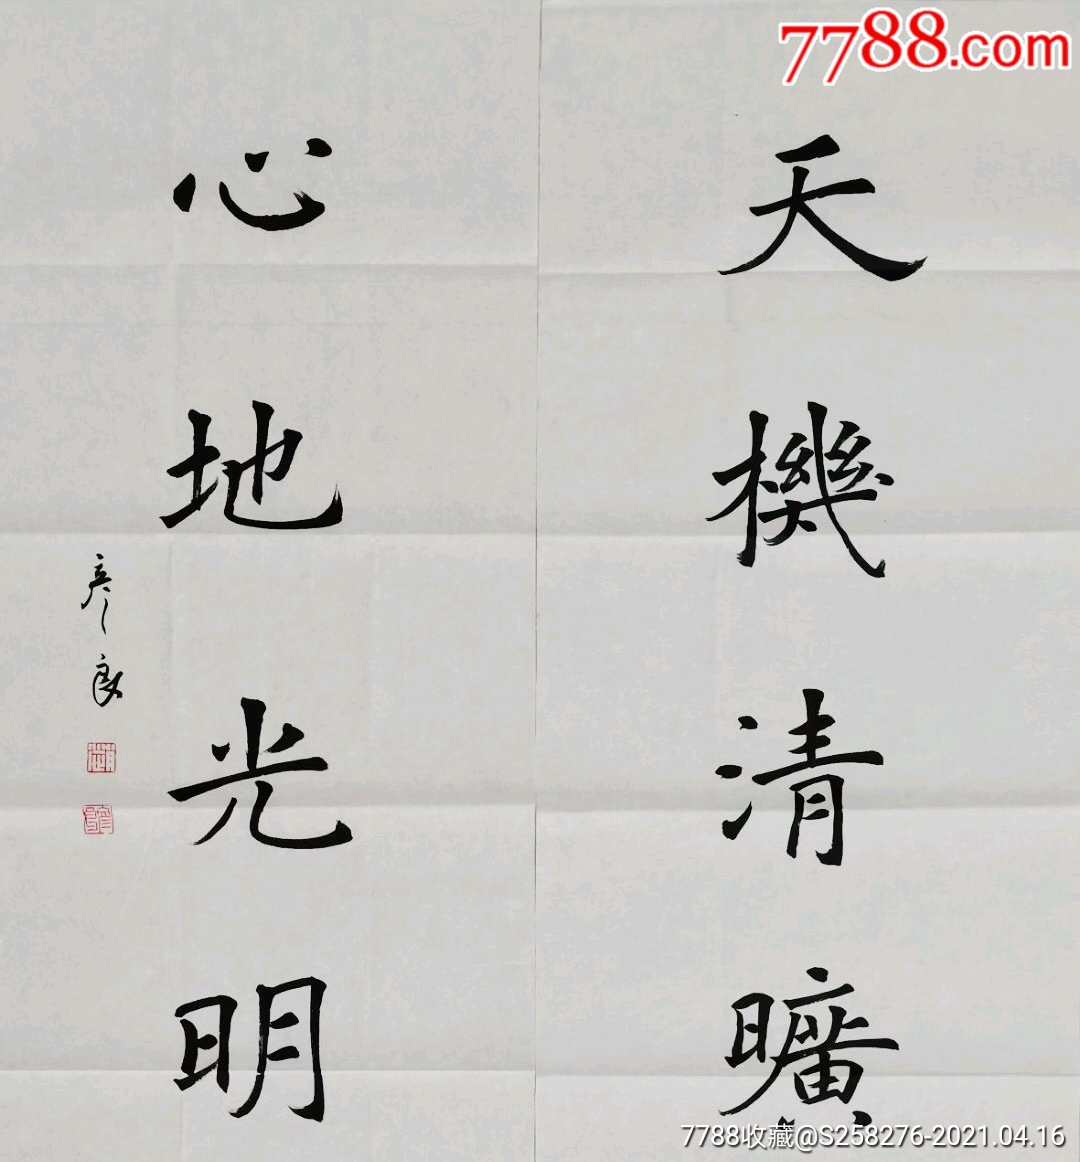 7788.com
天機清曠
心地光明
彦良
7788收藏@S258276-2021.04.16